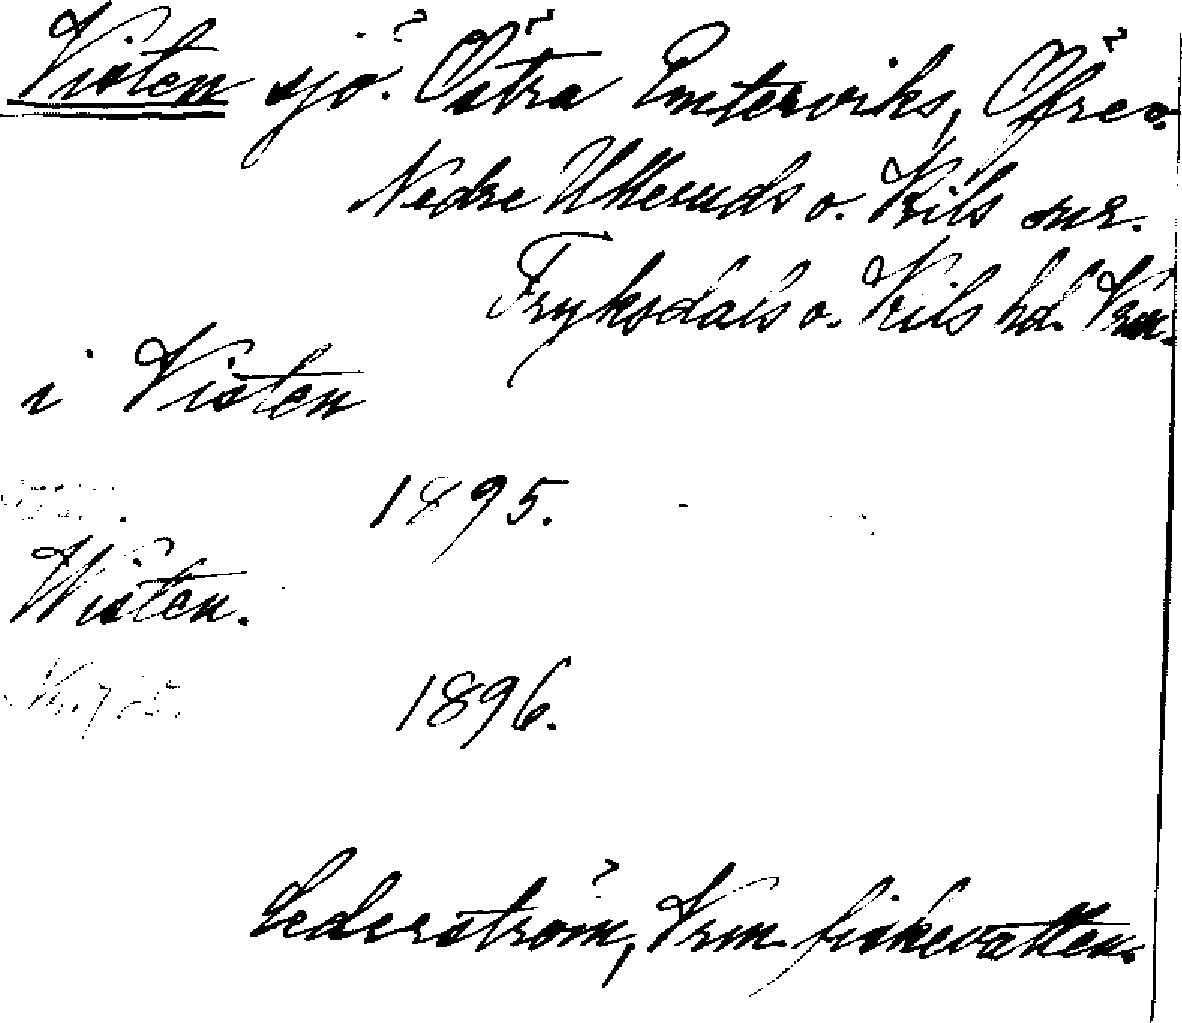 Visten sjö. Östra Emterviks, Öfre o.
Nedre Ulleruds o. Kils snr.
Fryksdals o. Kils hd. Vrm.
i Visten
1895.
Wisten.
1896.
Cederström, Vrm. fiskevatten.